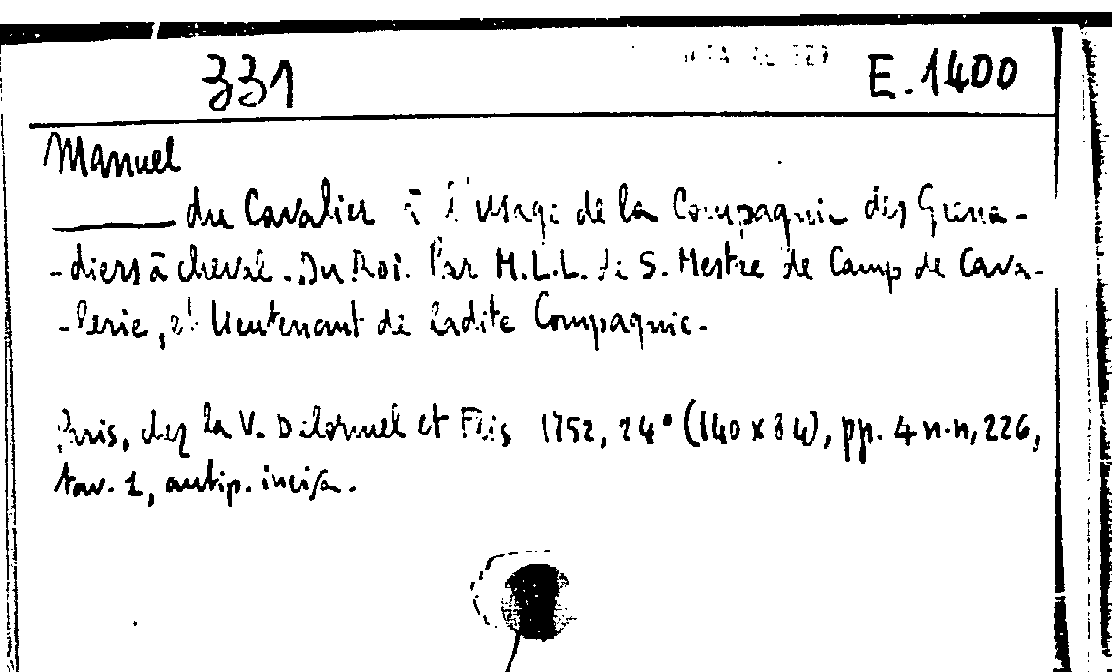 331 E.1400
Manuel
du Cavalier à l'usage de la Compagnie des Grena-
-diers à cheval. Du Roi. Par M.L.L. de S. Mestre de Camp de Cava-
-lerie, et Lieutenant de ladite Compagnie.
Paris, chez la V. Delormel et Fils 1752, 24° (140 x 84), pp. 4 n.n, 226,
tav. 1, antip. incisa.